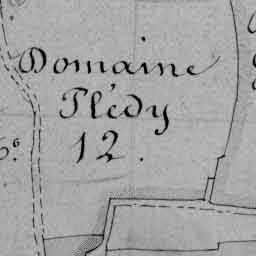 Domaine
Plédy
12.